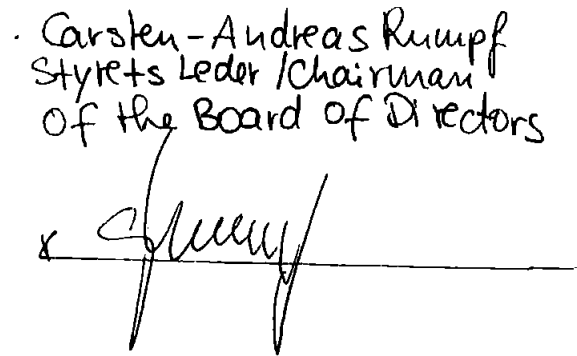 Carsten-Andreas Rumpf
Styrets Leder / Chairman
Of the Board of Directors
x